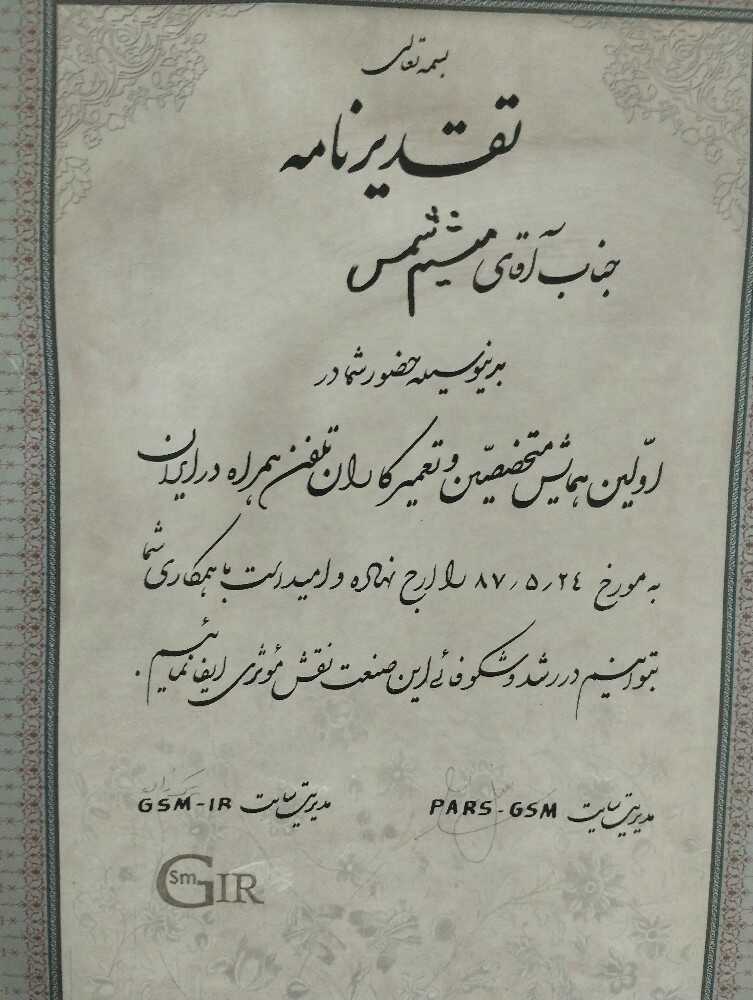 بسمه تعالی
تقدیرنامه
جناب آقای میثم شمس
بدینوسیله حضور شما در
اوّلین همایش متخصصین و تعمیرکاران تلفن همراه در ایران
به مورخ ۸۷/۵/۲٤ را ارج نهاده و امید است با همکاری شما
بتوانیم در رشد و شکوفائی این صنعت نقش مؤثری ایفا نمائیم.
مدیریت سایت PARS-GSM
مدیریت سایت GSM-IR
GSm IR